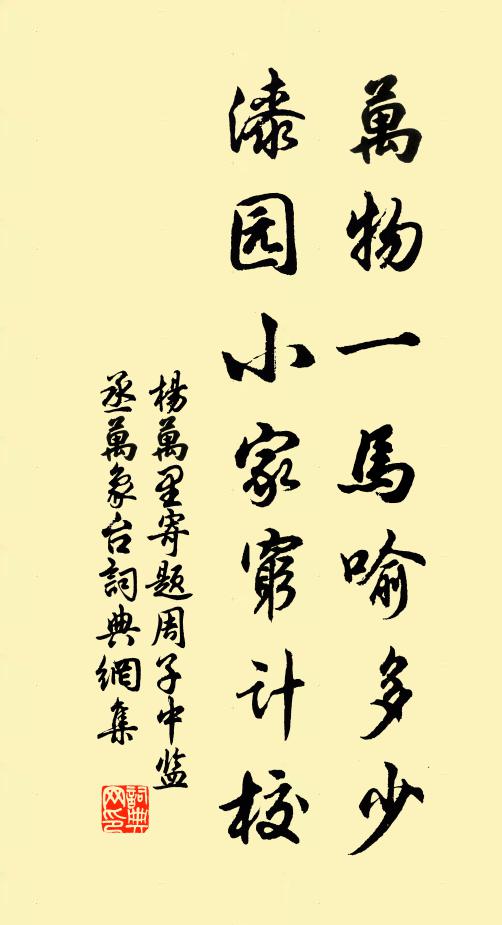 萬物一馬喻多少
漆园小家窮计校
楊萬里寄题周子中监
丞萬象台詞典網集
詞典网印